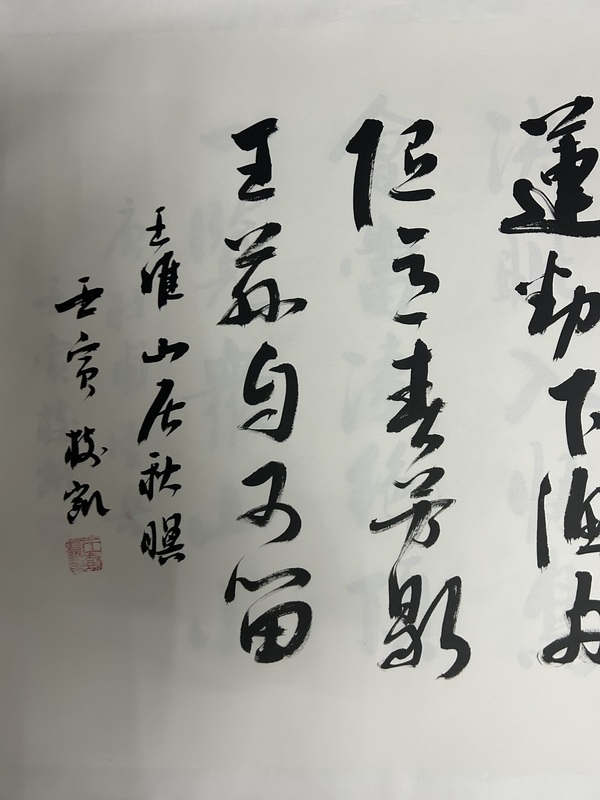 蓮動下漁舟
随意春芳歇
王孫自可留
王維山居秋暝
壬寅